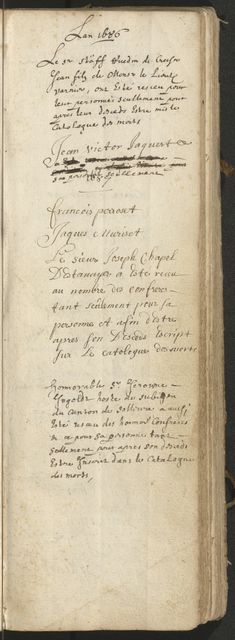 L'an 1686
Le Sr
Jean fils de Monsr le Lieut
ont Esté resceu pour
leur personne seullement pour
apres leur descés Estre mis le
Catalogue des morts
Jean Victor Jaquert
sa personne seullement
françois perrout
Jaques Muriset
Le Sieur Joseph Chapel
Destavayer a Esté receu
au nombre des confrer
tant seulement pour sa
personne Et afin d'etre
apres son Descés Escript
sur Le catologue des morts
honnorable Sr
hoste du
du Canton de Solleure a aussi
Esté resceu des Confreres
pour sa personne tant
seullement pour apres son descés
Estre Inscrit dans le Catalogue
des morts,